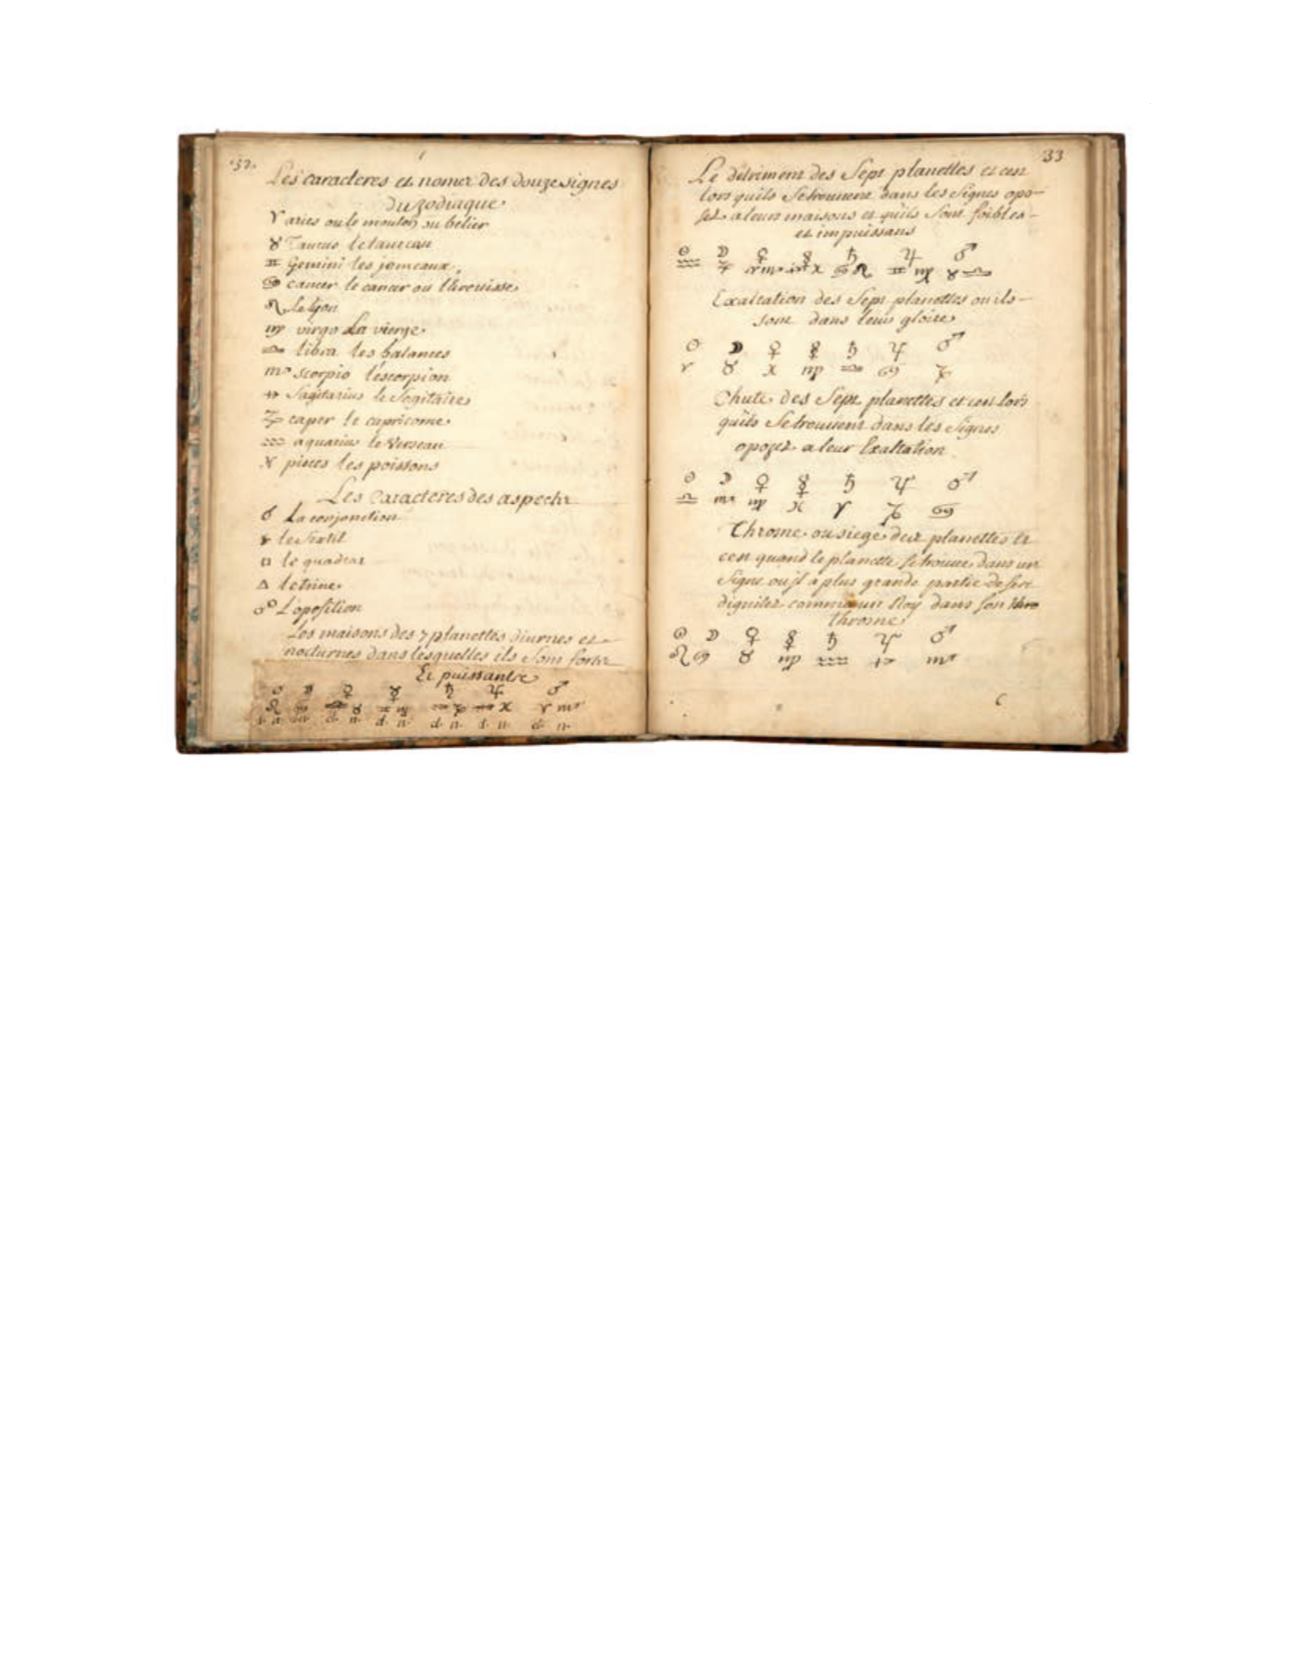 32.
Les caracteres et nomez des douze signes
du zodiaque
♈ aries ou le mouton ou belier
♉ Taurus le taureau
♊ Gemini les jemeaux
♋ cancer le cancer ou
♌ le lyon
♍ virgo La vierge
♎ libra les balances
♏ scorpio l'escorpion
♐ Sagitarius le Sagitaire
♑ caper le capricorne
♒ aquarius le Verseau
♓ pisces les poissons
Les Caracteres des aspects
☌ La conjonction
⚹ le Sextil
□ le quadrat
△ le trine
☍ L'oposition
Les maisons des 7 planettes diurnes et
nocturnes dans lesquelles ils Sont
Et puissants
☉ ☽ ♀ ☿ ♄ ♃ ♂
♌ ♎ ♉ ♊ ♍ ♒ ♑ ♐ ♓ ♈ ♏
d. n. d. n. d. n. d. n. d. n.
33
Le detriment des Sept planettes et
lors quils Se trouvent dans les Signes opo-
sez a leurs maisons et quils Sont foibles
et impuissans
☉ ☽ ♀ ☿ ♄ ♃ ♂
♒ ♑ ♈ ♏ ♓ ♋ ♌ ♊ ♍ ♉ ♎
Exaltation des Sept planettes ou ils
sont dans leur gloire
☉ ☽ ♀ ☿ ♄ ♃ ♂
♈ ♉ ♓ ♍ ♎ ♋ ♑
Chute des Sept planettes et lors
quils Se trouvent dans les Signes
opozez a leur Exaltation
☉ ☽ ♀ ☿ ♄ ♃ ♂
♎ ♏ ♍ ♓ ♈ ♑ ♋
Throsne ou siege des planettes et
cest quand le planette se trouve dans un
Signe ou il a plus grande partie de ses
dignitez comme un Roy dans son
throsne
☉ ☽ ♀ ☿ ♄ ♃ ♂
♌ ♋ ♉ ♍ ♒ ♐ ♏